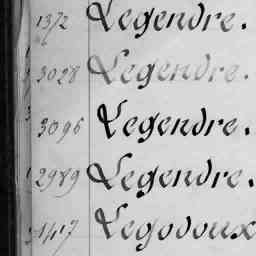 1372 Legendre.
3028 Legendre.
3096 Legendre.
2989 Legendre.
1417 Legodoux